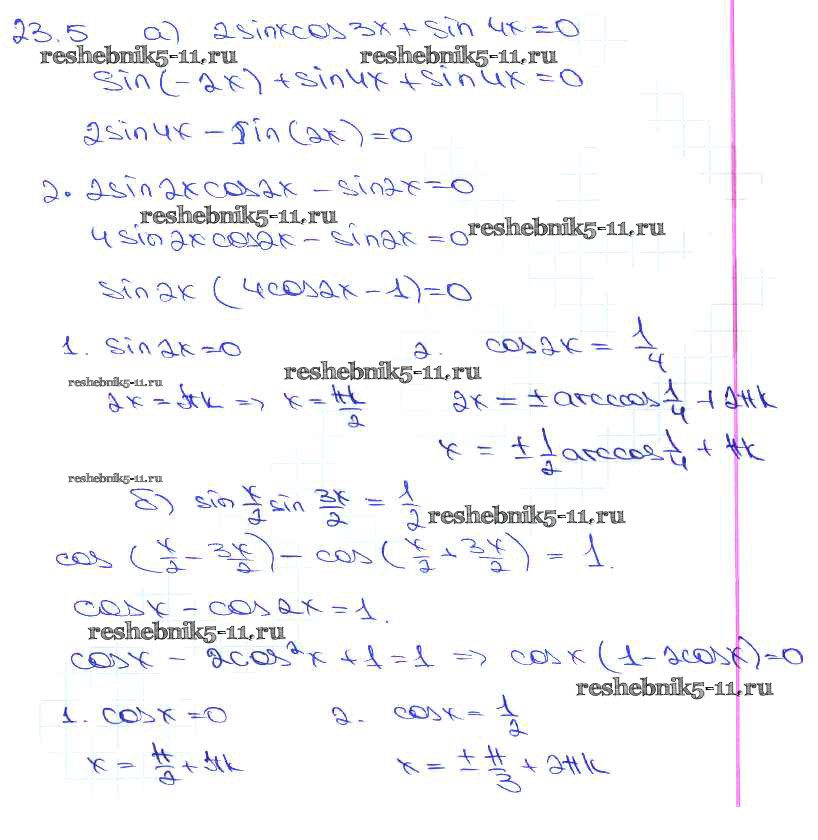 23.5 а) 2sinxcos3x + sin 4x = 0
reshebnik5-11.ru reshebnik5-11.ru
sin(-2x) + sin4x + sin4x = 0
2sin4x - sin(2x) = 0
2. 2sin2xcos2x - sin2x = 0
reshebnik5-11.ru reshebnik5-11.ru
4sin2xcos2x - sin2x = 0
sin2x (4cos2x - 1) = 0
1. sin2x = 0 2. cos2x = 1/4
reshebnik5-11.ru reshebnik5-11.ru
2x = πk => x = πk/2 2x = ± arccos 1/4 + 2πk
x = ± 1/2 arccos 1/4 + πk
reshebnik5-11.ru
б) sin x/2 sin 3x/2 = 1/2
reshebnik5-11.ru
cos (x/2 - 3x/2) - cos (x/2 + 3x/2) = 1.
cosx - cos2x = 1.
reshebnik5-11.ru
cosx - 2cos²x + 1 = 1 => cosx (1 - 2cosx) = 0
reshebnik5-11.ru
1. cosx = 0 2. cosx = 1/2
x = π/2 + πk x = ± π/3 + 2πk